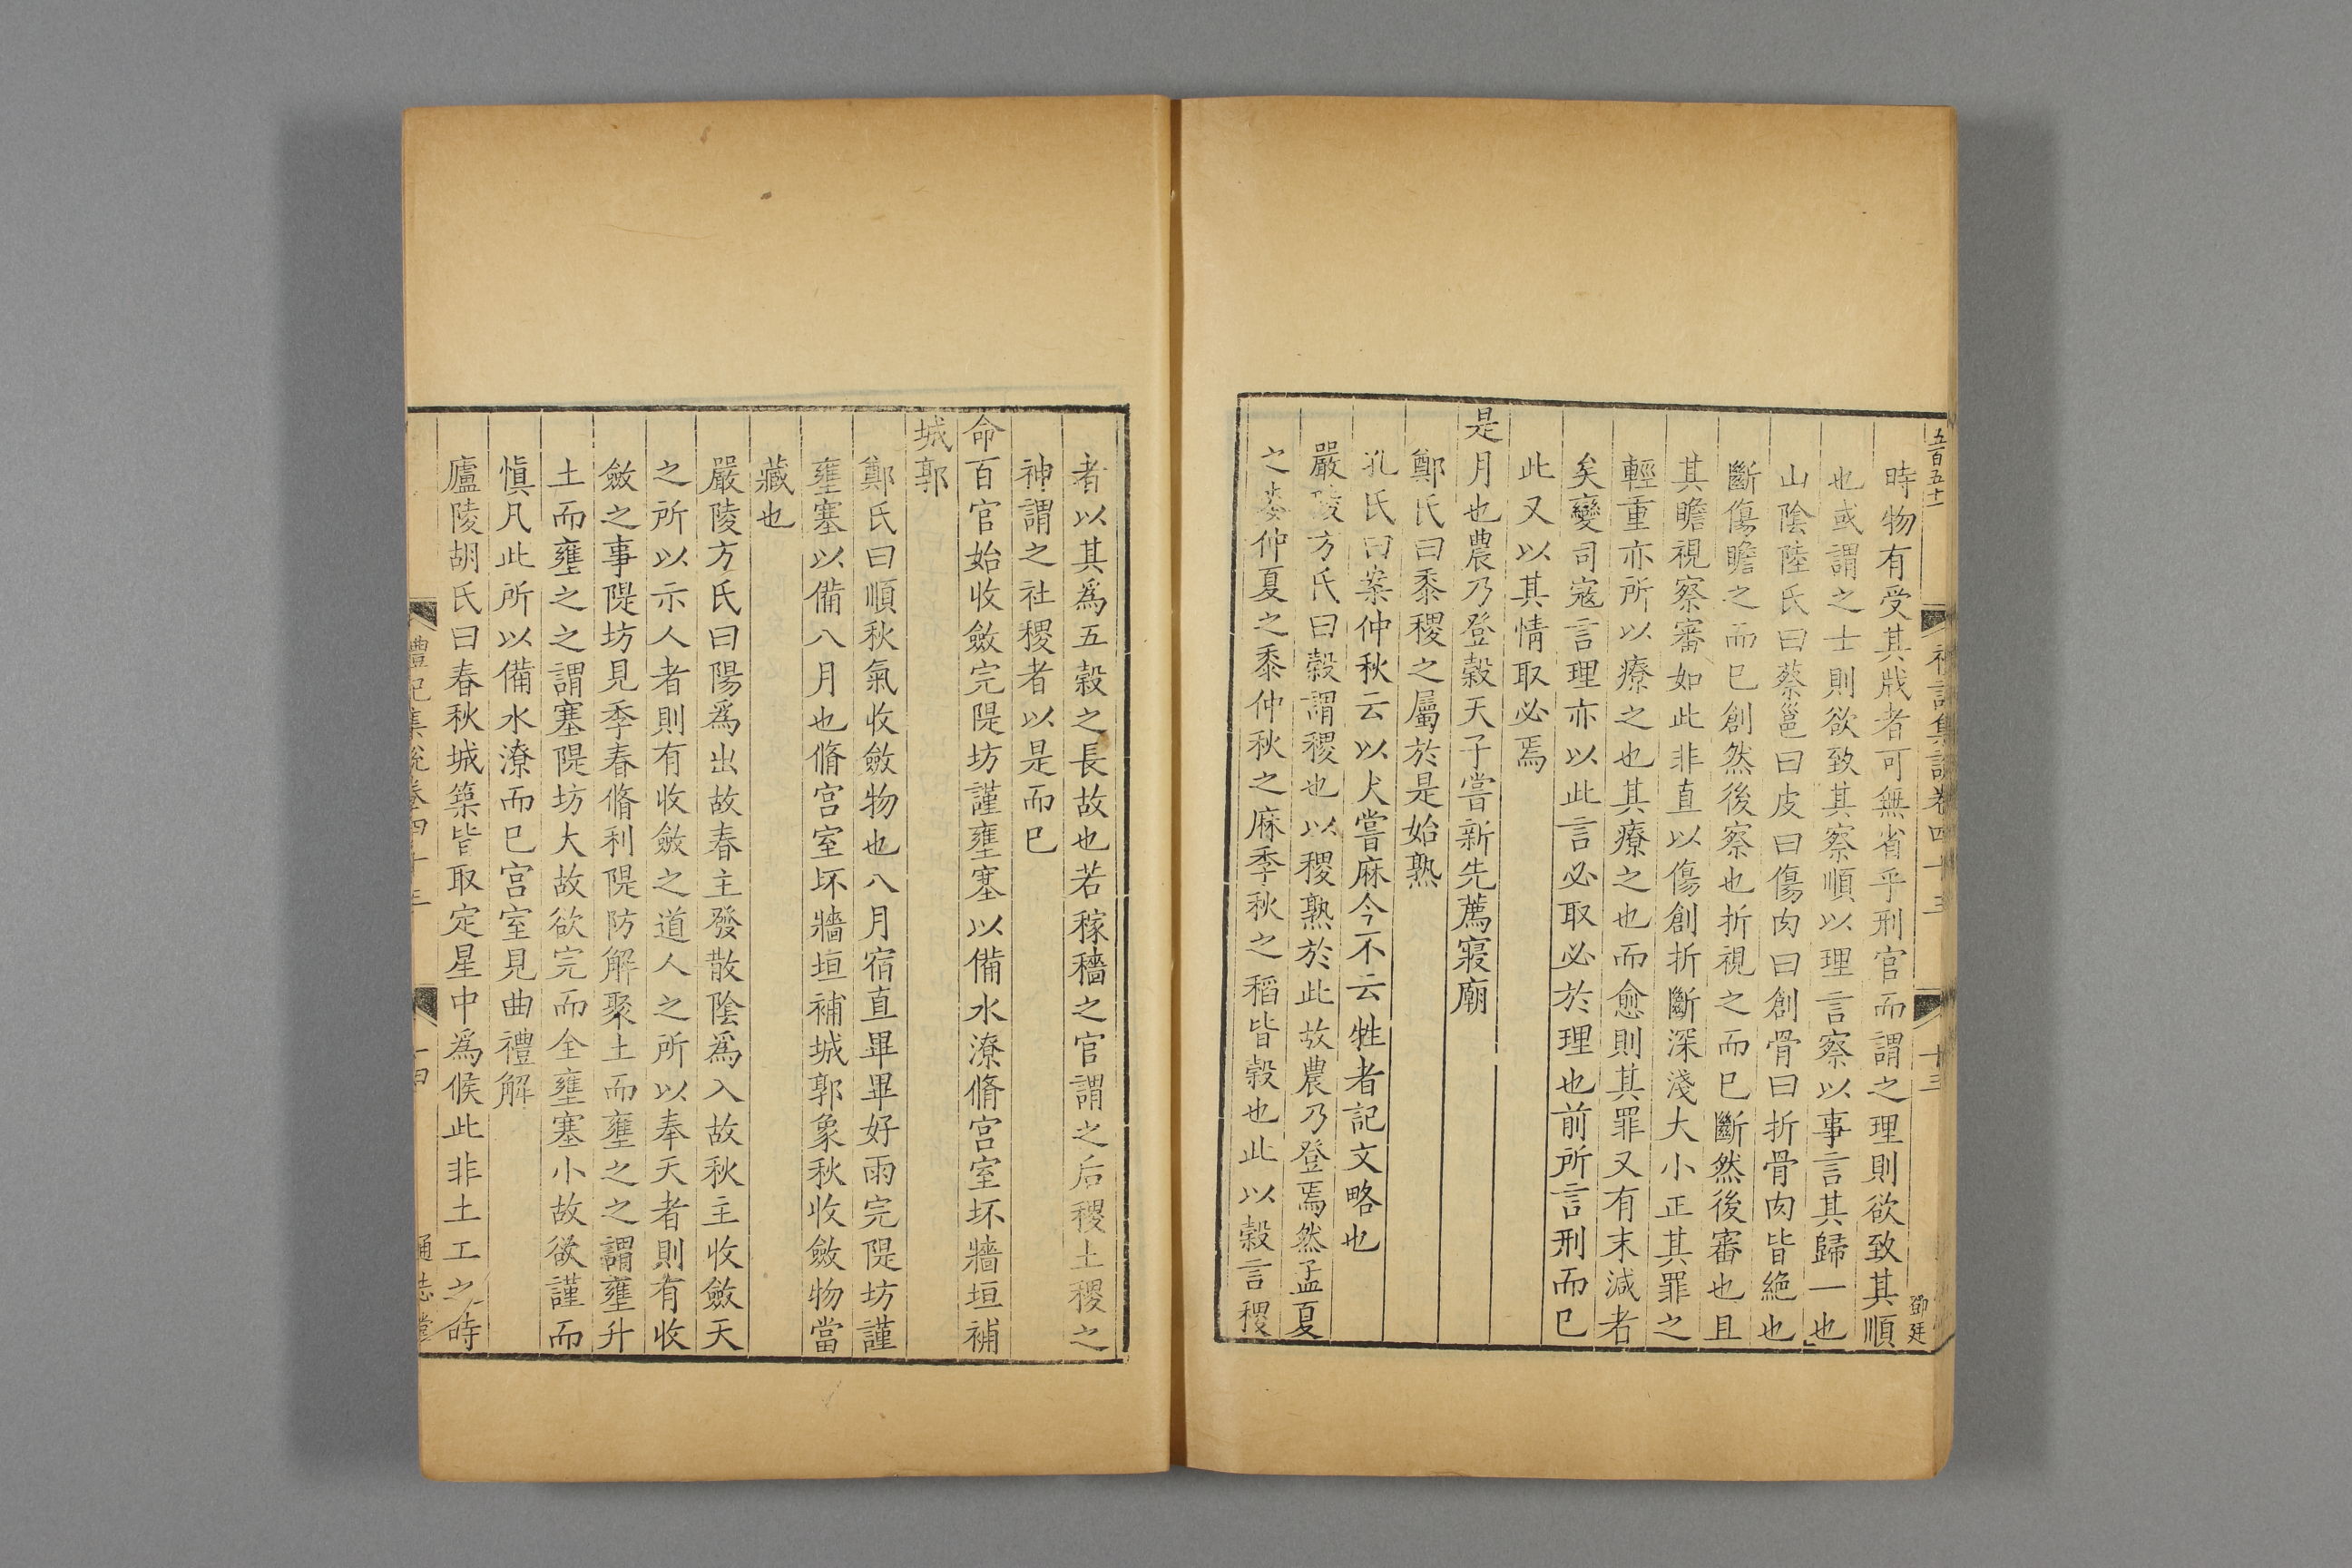 五百五十
禮記集說卷四十三
十三
鄧廷
時物有受其戕者可無省乎刑官而謂之理則欲致其順
也或謂之士則欲致其察順以理言察以事言其歸一也
山陰陸氏曰蔡邕曰皮曰傷肉曰創骨曰折骨肉皆絕也
斷傷瞻之而已創然後察也折視之而已斷然後審也且
其瞻視察審如此非直以傷創折斷深淺大小正其罪之
輕重亦所以療之也其療之也而愈則其罪又有末減者
矣變司寇言理亦以此言必取必於理也前所言刑而已
此又以其情取必焉
是月也農乃登穀天子嘗新先薦寢廟
鄭氏曰黍稷之屬於是始熟
孔氏曰案仲秋云以犬嘗麻今不云牲者記文略也
嚴陵方氏曰穀謂稷也以稷熟於此故農乃登焉然孟夏
之麥仲夏之黍仲秋之麻季秋之稻皆穀也此以穀言稷
者以其爲五穀之長故也若稼穡之官謂之后稷土稷之
神謂之社稷者以是而已
命百官始收斂完隄坊謹壅塞以備水潦脩宫室坏牆垣補
城郭
鄭氏曰順秋氣收斂物也八月宿直畢畢好雨完隄坊謹
壅塞以備八月也脩宫室坏牆垣補城郭象秋收斂物當
藏也
嚴陵方氏曰陽爲出故春主發散陰爲入故秋主收斂天
之所以示人者則有收斂之道人之所以奉天者則有收
斂之事隄坊見季春脩利隄防解聚土而壅之之謂壅升
土而壅之之謂塞隄坊大故欲完而全壅塞小故欲謹而
愼凡此所以備水潦而已宫室見曲禮解
廬陵胡氏曰春秋城築皆取定星中爲候此非土工之時
禮記集說卷四十三
十四
通志堂